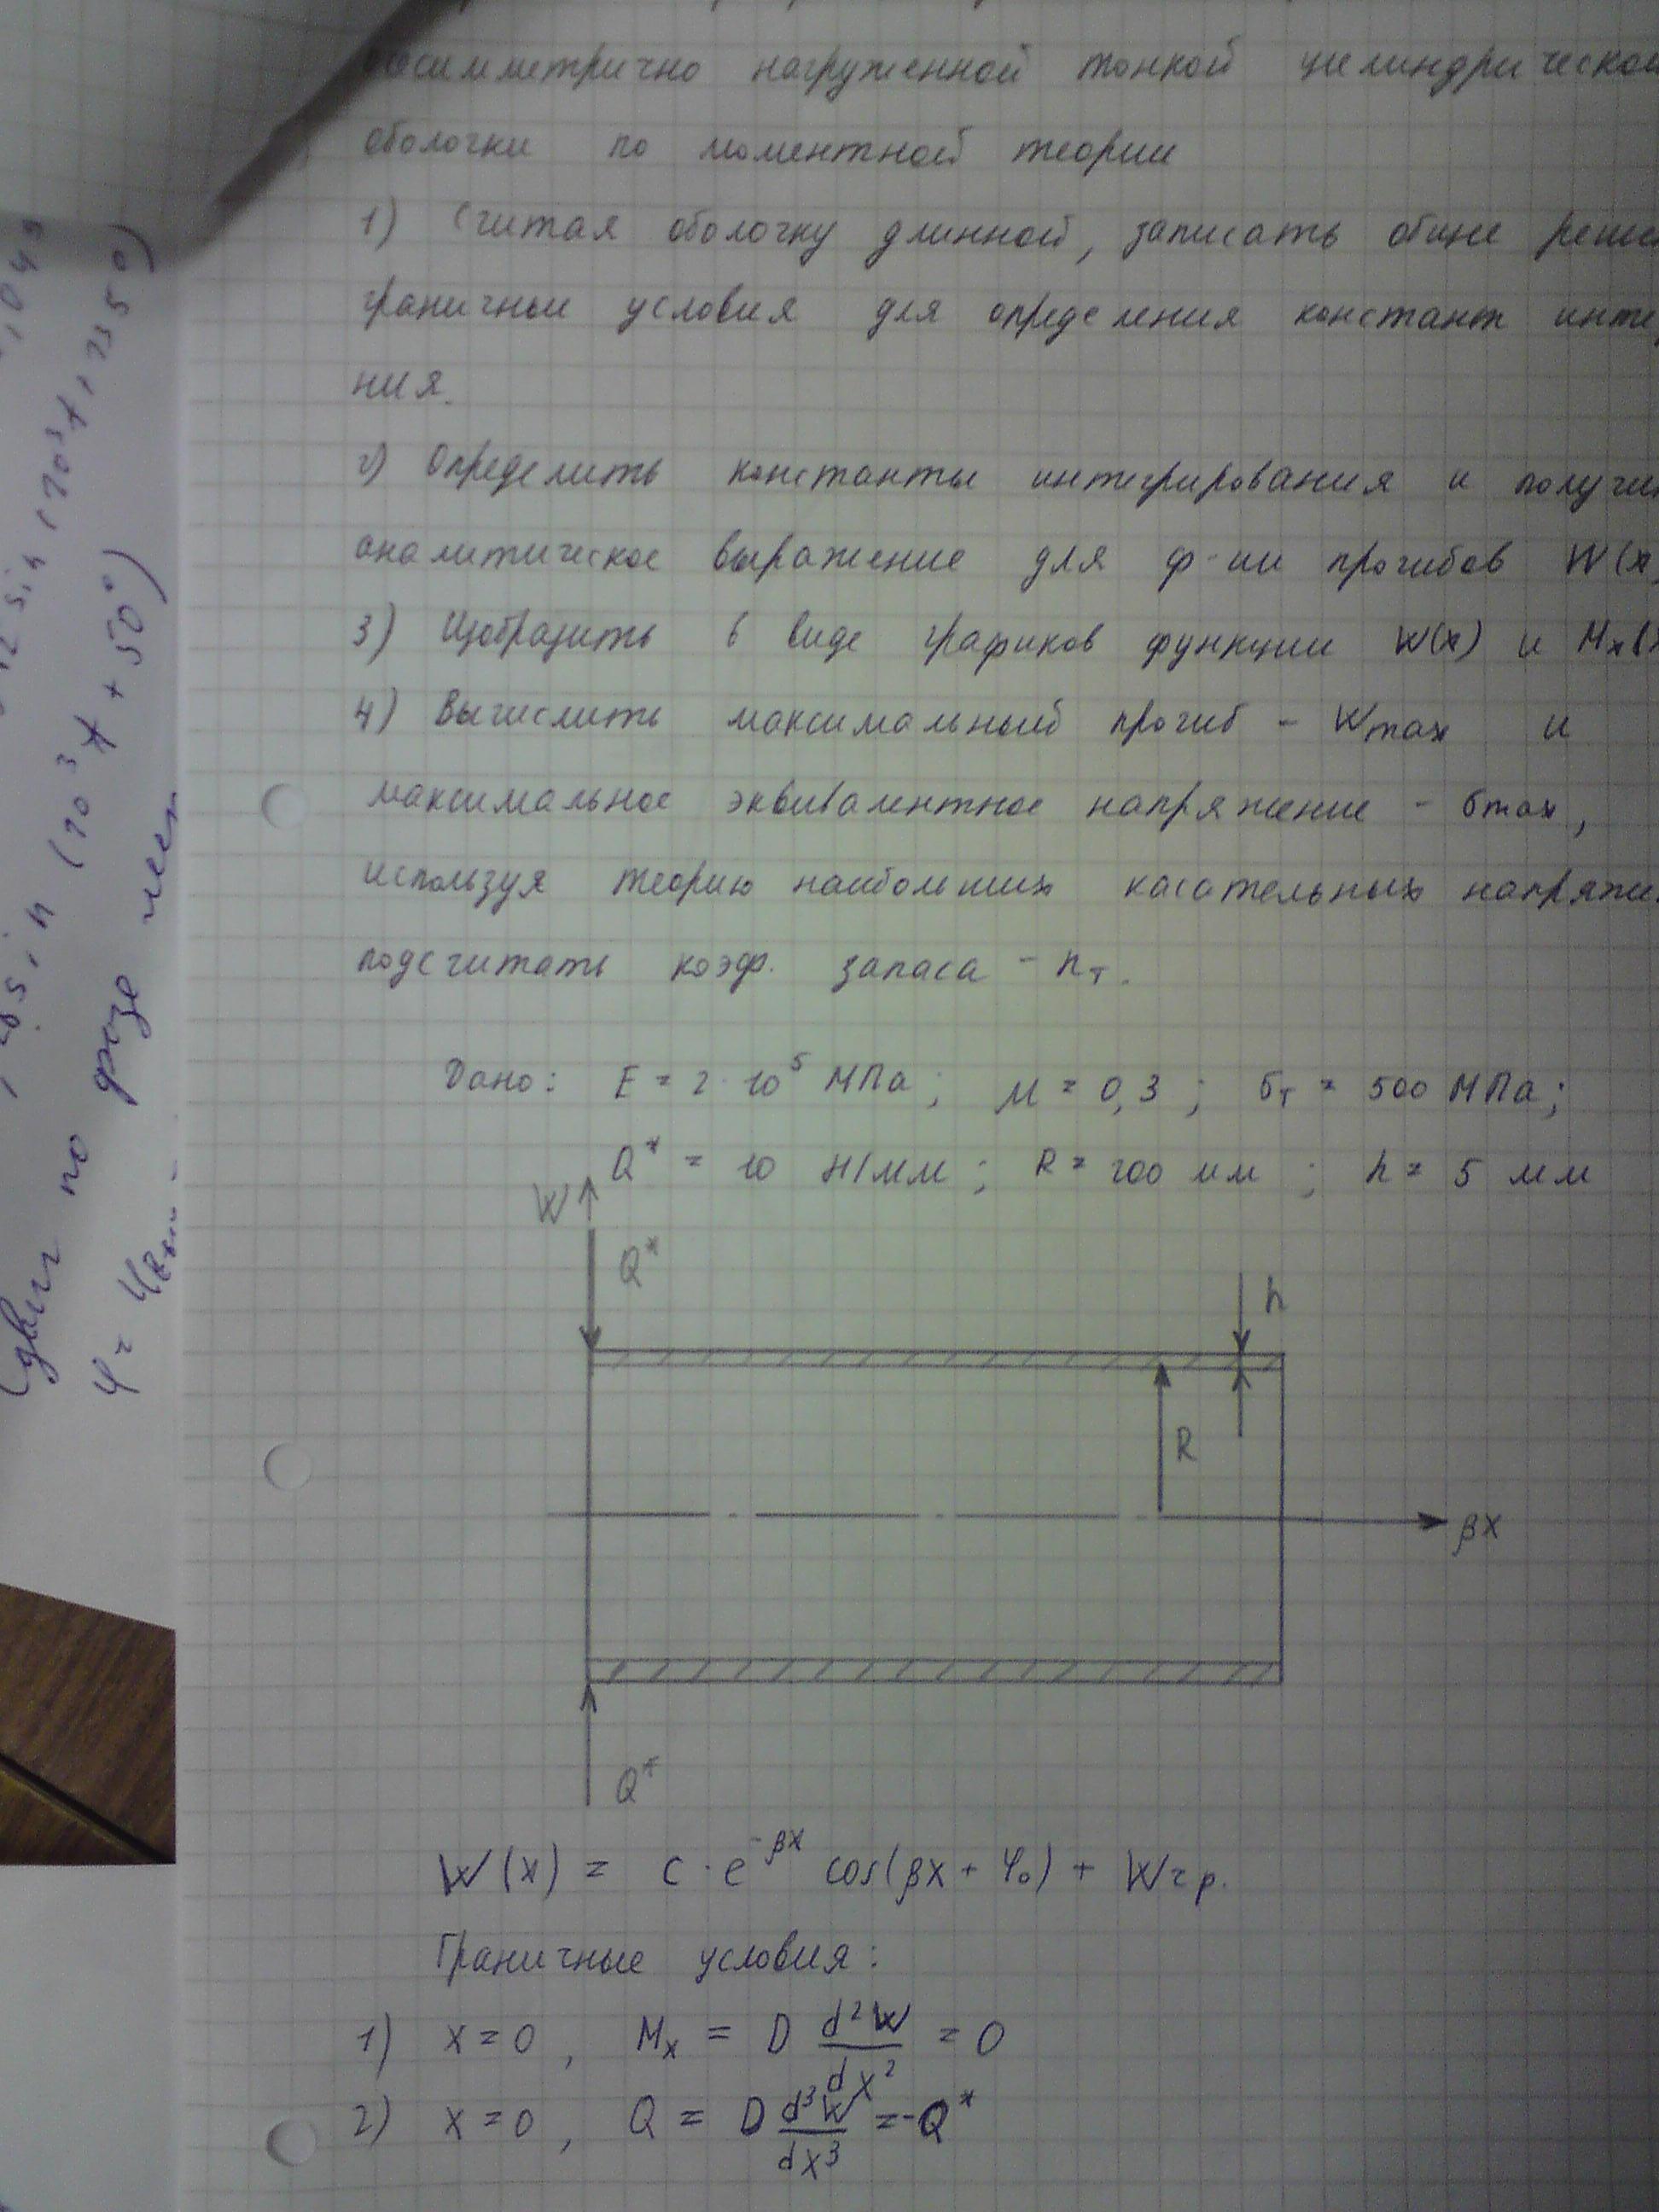 осимметрично нагруженной тонкой цилиндрической
оболочки по моментной теории
1) Считая оболочку длинной, записать общие реше
граничные условия для определения констант инте
ния.
2) Определить константы интегрирования и получи
аналитическое выражение для ф-ии прогибов W(x)
3) Изобразить в виде графиков функции W(x) и Mx(
4) Вычислить максимальный прогиб - Wmax и
максимальное эквивалентное напряжение - σmax,
используя теорию наибольших касательных напряже
подсчитать коэф. запаса - nт.
Дано: E = 2·10⁵ МПа; μ = 0,3; σт = 500 МПа;
Q* = 10 Н/мм; R = 200 мм; h = 5 мм
W
Q*
h
R
βx
Q*
W(x) = C·e^-βx cos(βx + φ₀) + Wчр.
Граничные условия:
1) x = 0, Mx = D d²W/dx² = 0
2) x = 0, Q = D d³W/dx³ = -Q*
sin (10³t + 50°)
Сдвиг по фазе